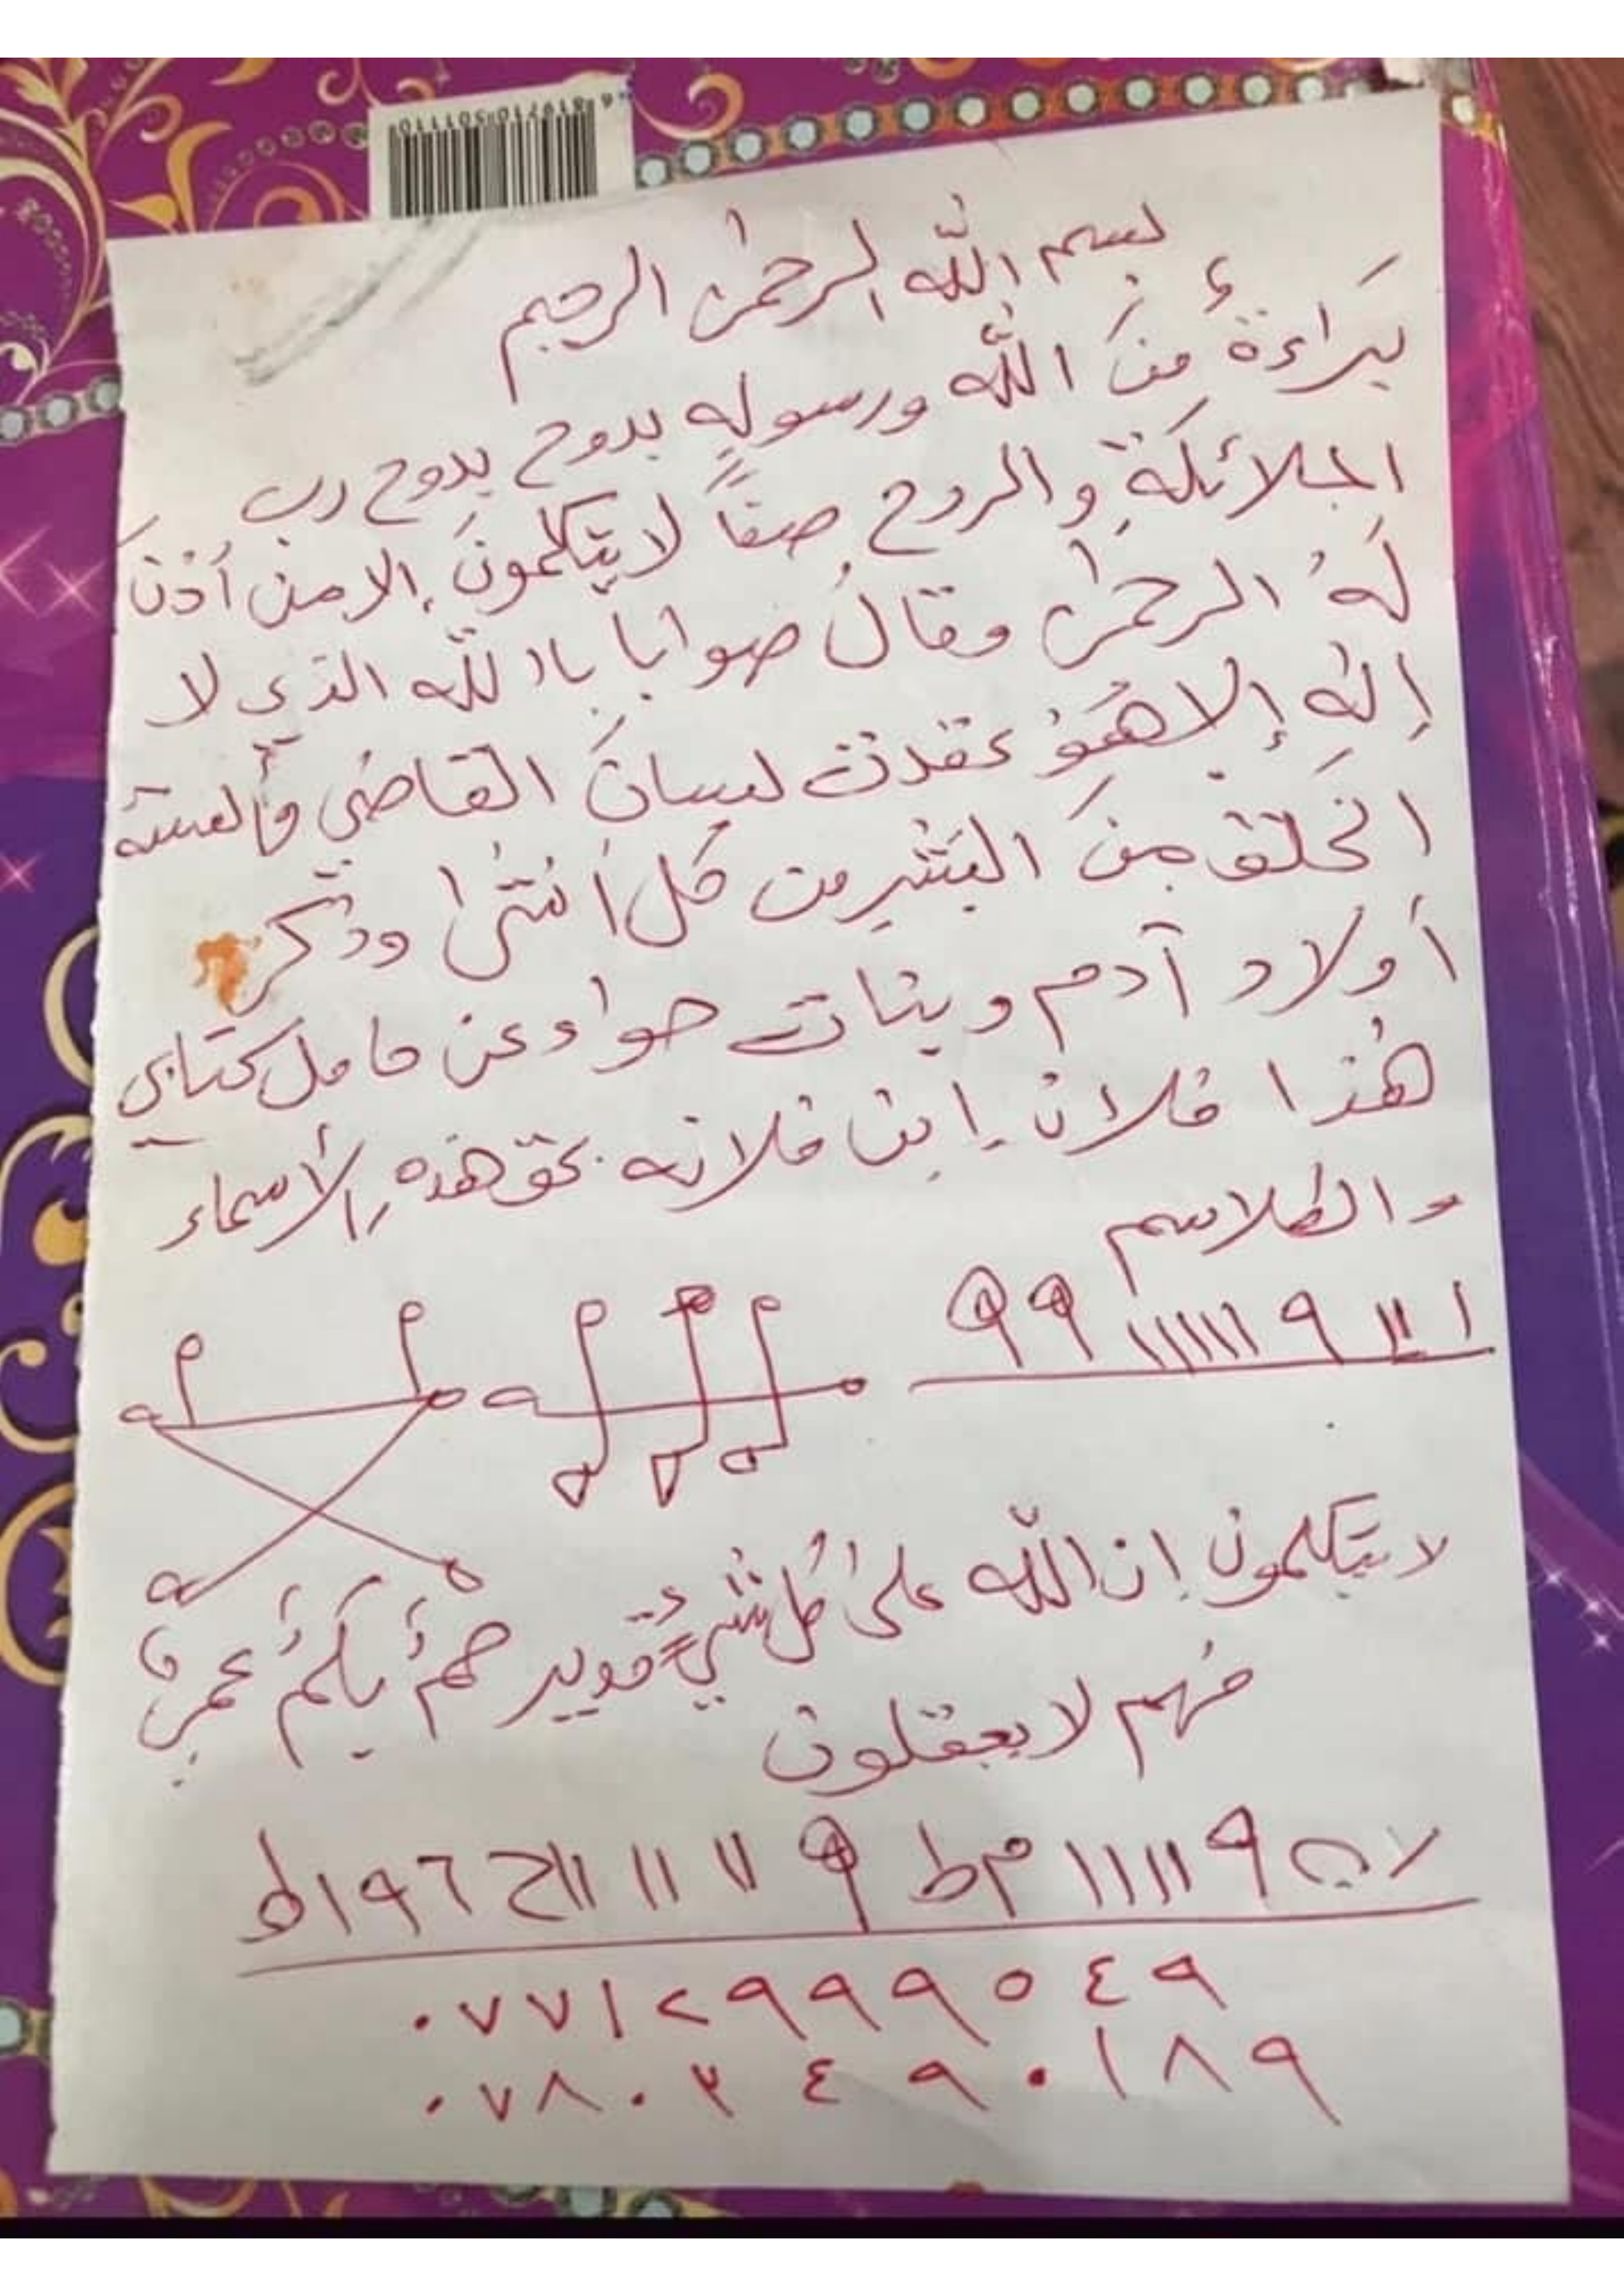 6 819710 501110
بسم الله الرحمٰن الرحيم
بَراءةٌ مِنَ الله ورسولِهِ بدوح بدوح رب
الملائكةِ والروح صفاً لا يتكلمونَ إلا من أذنَ
لَهُ الرحمٰن وقالَ صوابا باالله الذي لا
إلٰه إلا هُوَ عقدت لسانَ القاضي وألسنة
الخلق مِنَ البَشر من كل أُنثىٰ وذكر
أولاد آدم وبنات حواء عن حامل كتابي
هٰذا فلان ابن فلانه بحق هذه الأسماء
والطلاسم
١ ١١١ ٩ ١١١١١١ ٩٩
لا يتكلمون إن الله علىٰ كُل شيءٍ قدير صمٌ بكمٌ عميٌ
فهم لا يعقلون
٩ ١١١١١ م ط ٩ ١١ ١١ ١١ ح ٦ ٩ ١ ط
٠٧٧١٢٩٩٩٥٤٩
٠٧٨٠٢٤٩٠١٨٩